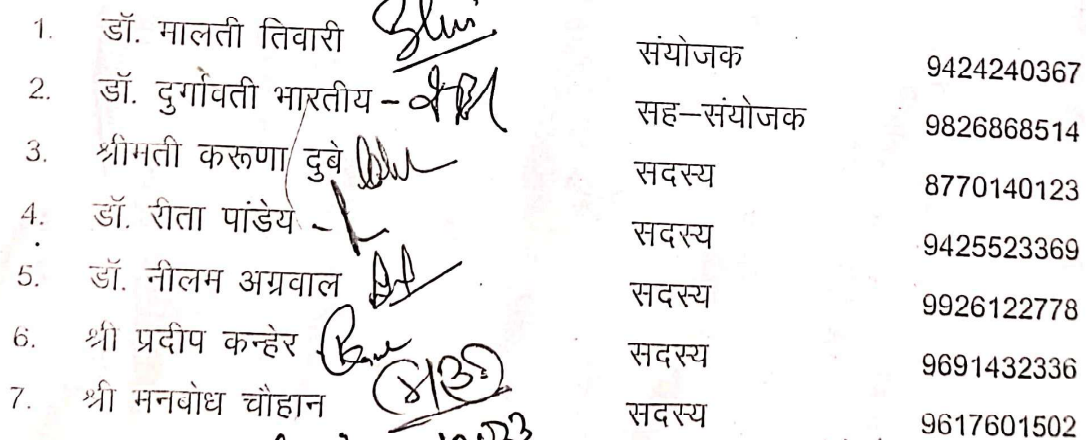 1. डॉ. मालती तिवारी संयोजक 9424240367
2. डॉ. दुर्गावती भारतीय – सह–संयोजक 9826868514
3. श्रीमती करूणा दुबे सदस्य 8770140123
4. डॉ. रीता पांडेय - सदस्य 9425523369
5. डॉ. नीलम अग्रवाल सदस्य 9926122778
6. श्री प्रदीप कन्हेर सदस्य 9691432336
7. श्री मनबोध चौहान सदस्य 9617601502